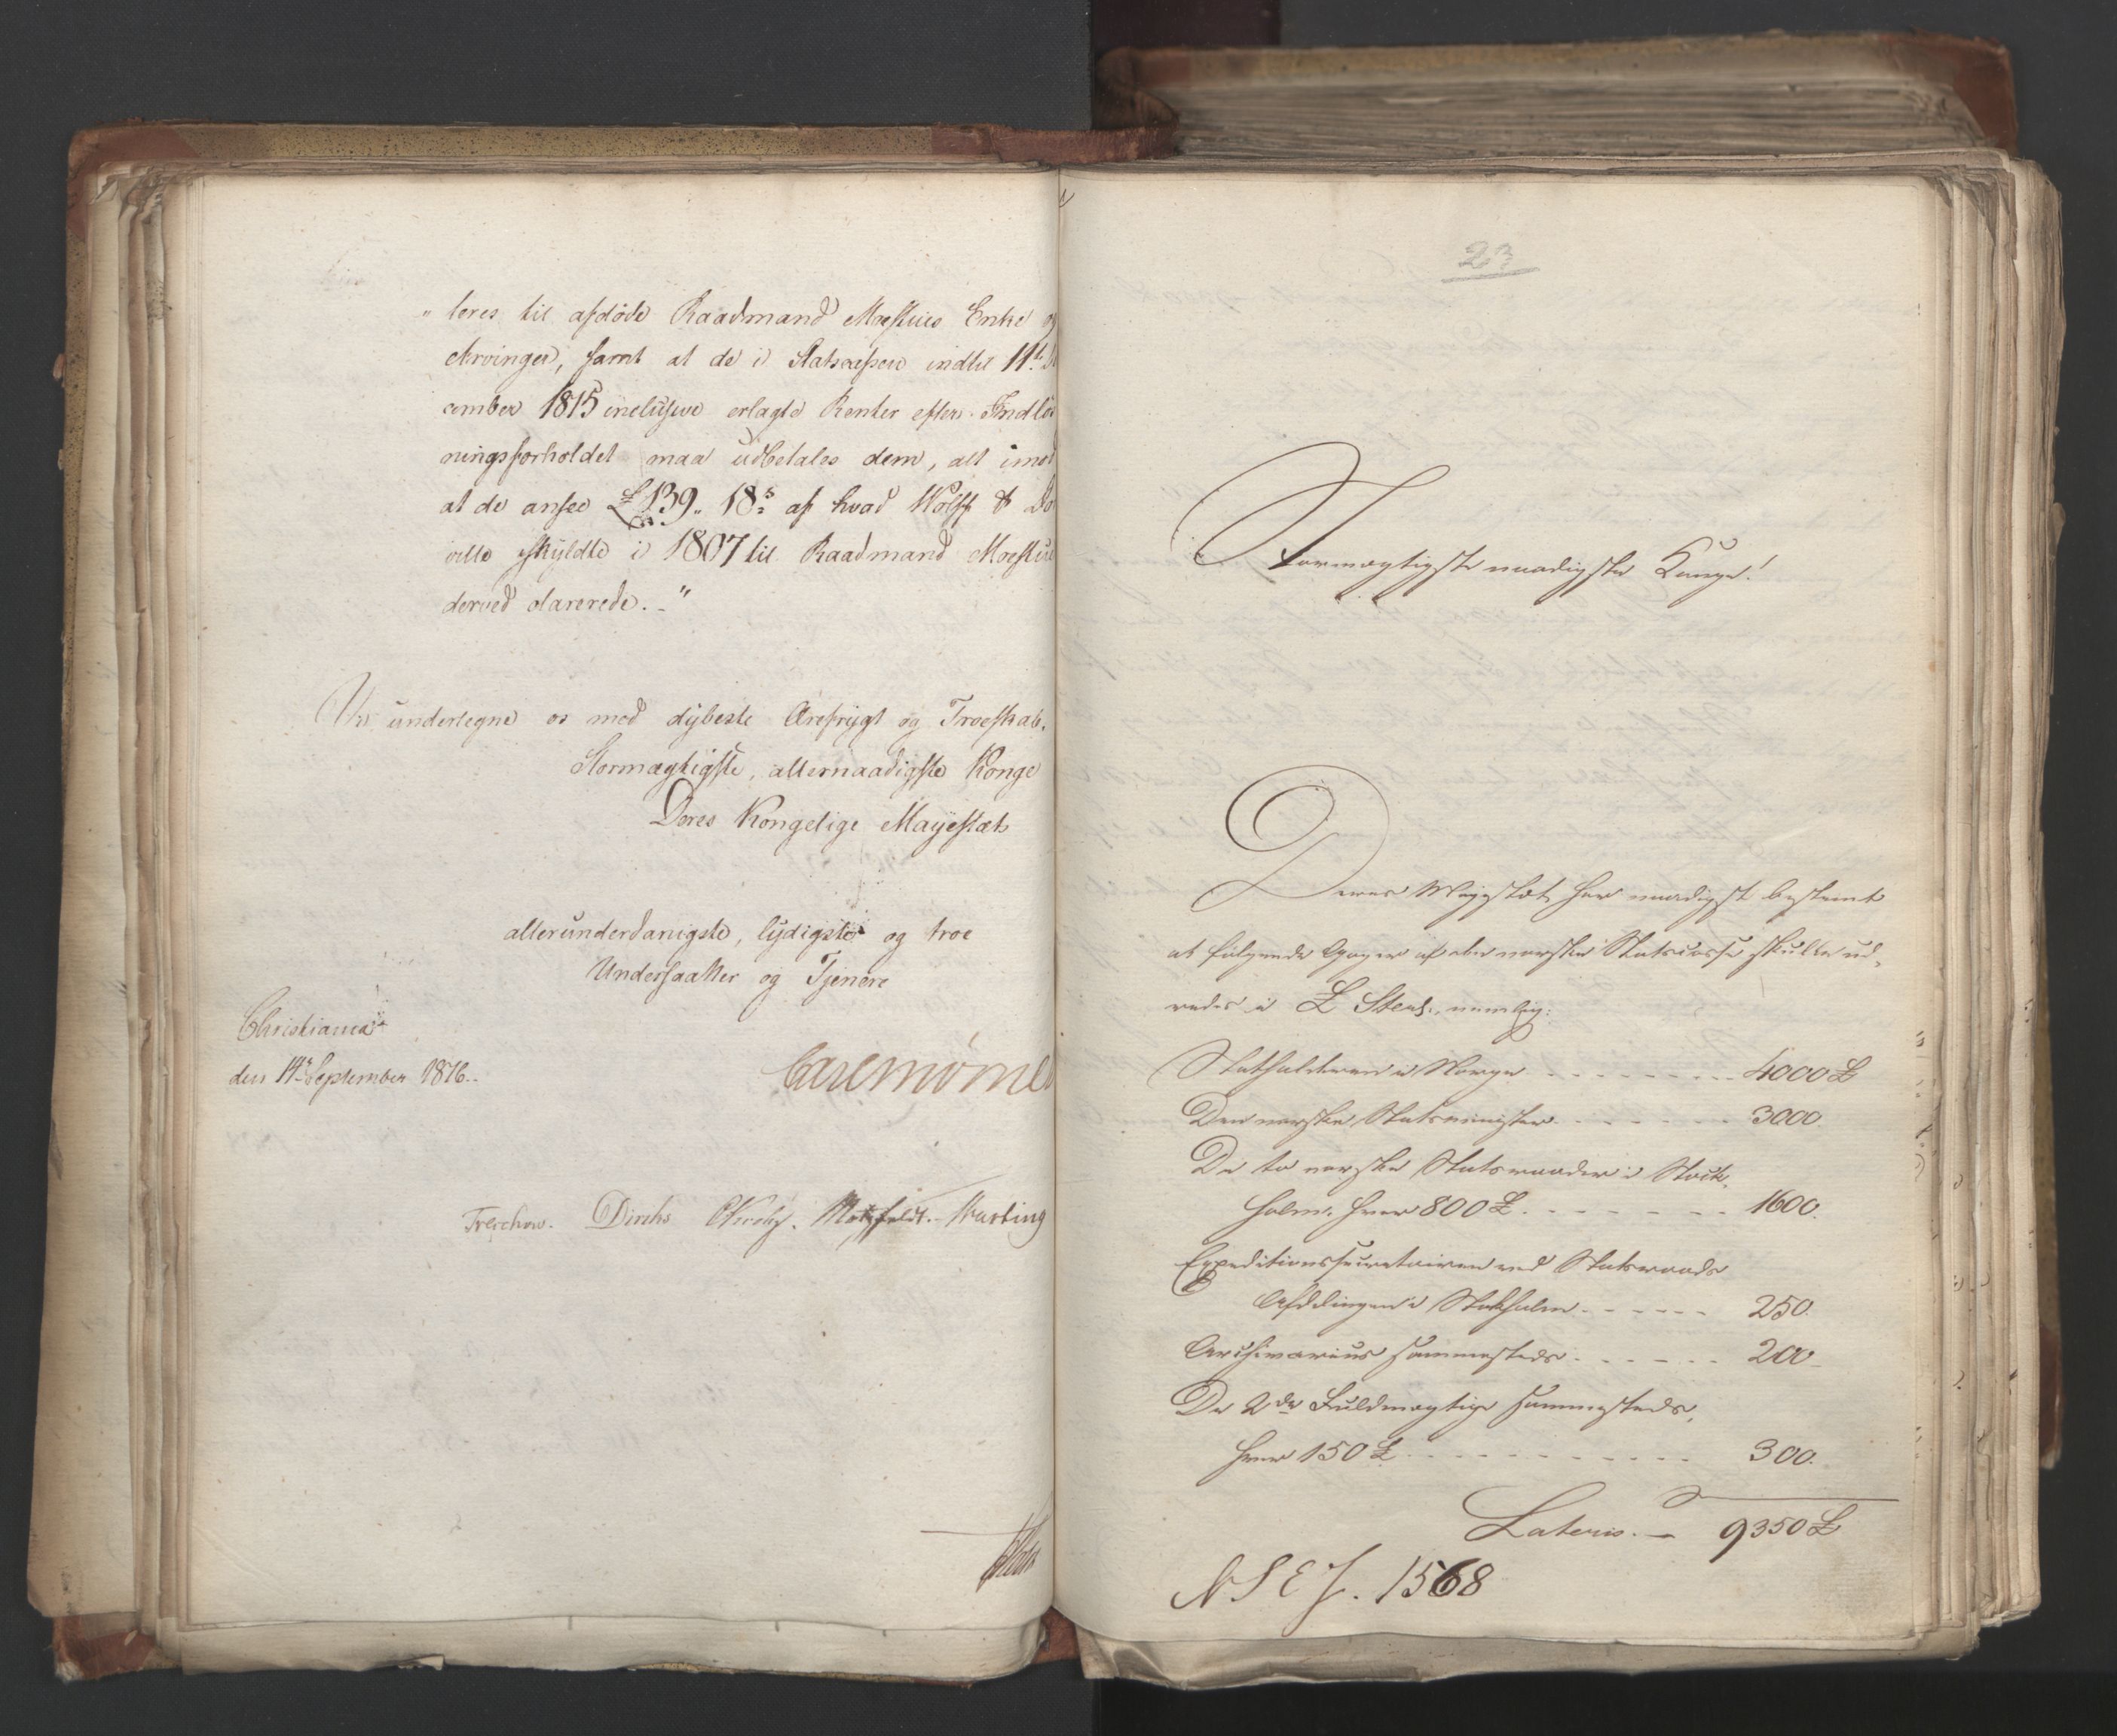 „ leres til afdöde Raadmand Moestues Enke og
Arvinger, samt at de i Statscassen indtil 11t. De
cember 1815 inclusive erlagte Renter efter Indlös
ningsforholdet maa udbetales dem, alt imod
at de ansee £ 139„ 18s af hvad Wolff & Do
ville skyldte i 1807 til Raadmand Moestue
derved clarerede. –"
Vi undertegne os med dybeste Ærefrygt og Troeskab.
Stormægtigste, allernaadigste Konge
Deres Kongelige Mayestæts
allerunderdanigste, lydigste og troe
Undersaatter og Tjenere
Christiania
den 14 September 1816.
Carl Mörner
Treschow. Diriks Motzfeldt. Hasting
23
Stormægtigste naadigste Konge!
Deres Mayestæt har naadigst bestemt
at følgende Gager af den norske Statscasse skulle ud„
redes i £ Sterl., nemlig:
Statholderen i Norge - - - - - 4000 £
Den norske Statsminister - - - - - 3000.
De to norske Statsraader i Stock„
holm. hver 800 £. - - - - - 1600.
Expeditionssecretairen ved Statsraads
Afdelingen i Stokholm - - - - - 250.
Archivarius sammesteds. - - - - - 200
De 2de Fuldmægtige sammesteds,
hver 150 £ - - - - - 300.
Lateris. — 9350 £
N S E J. 1568